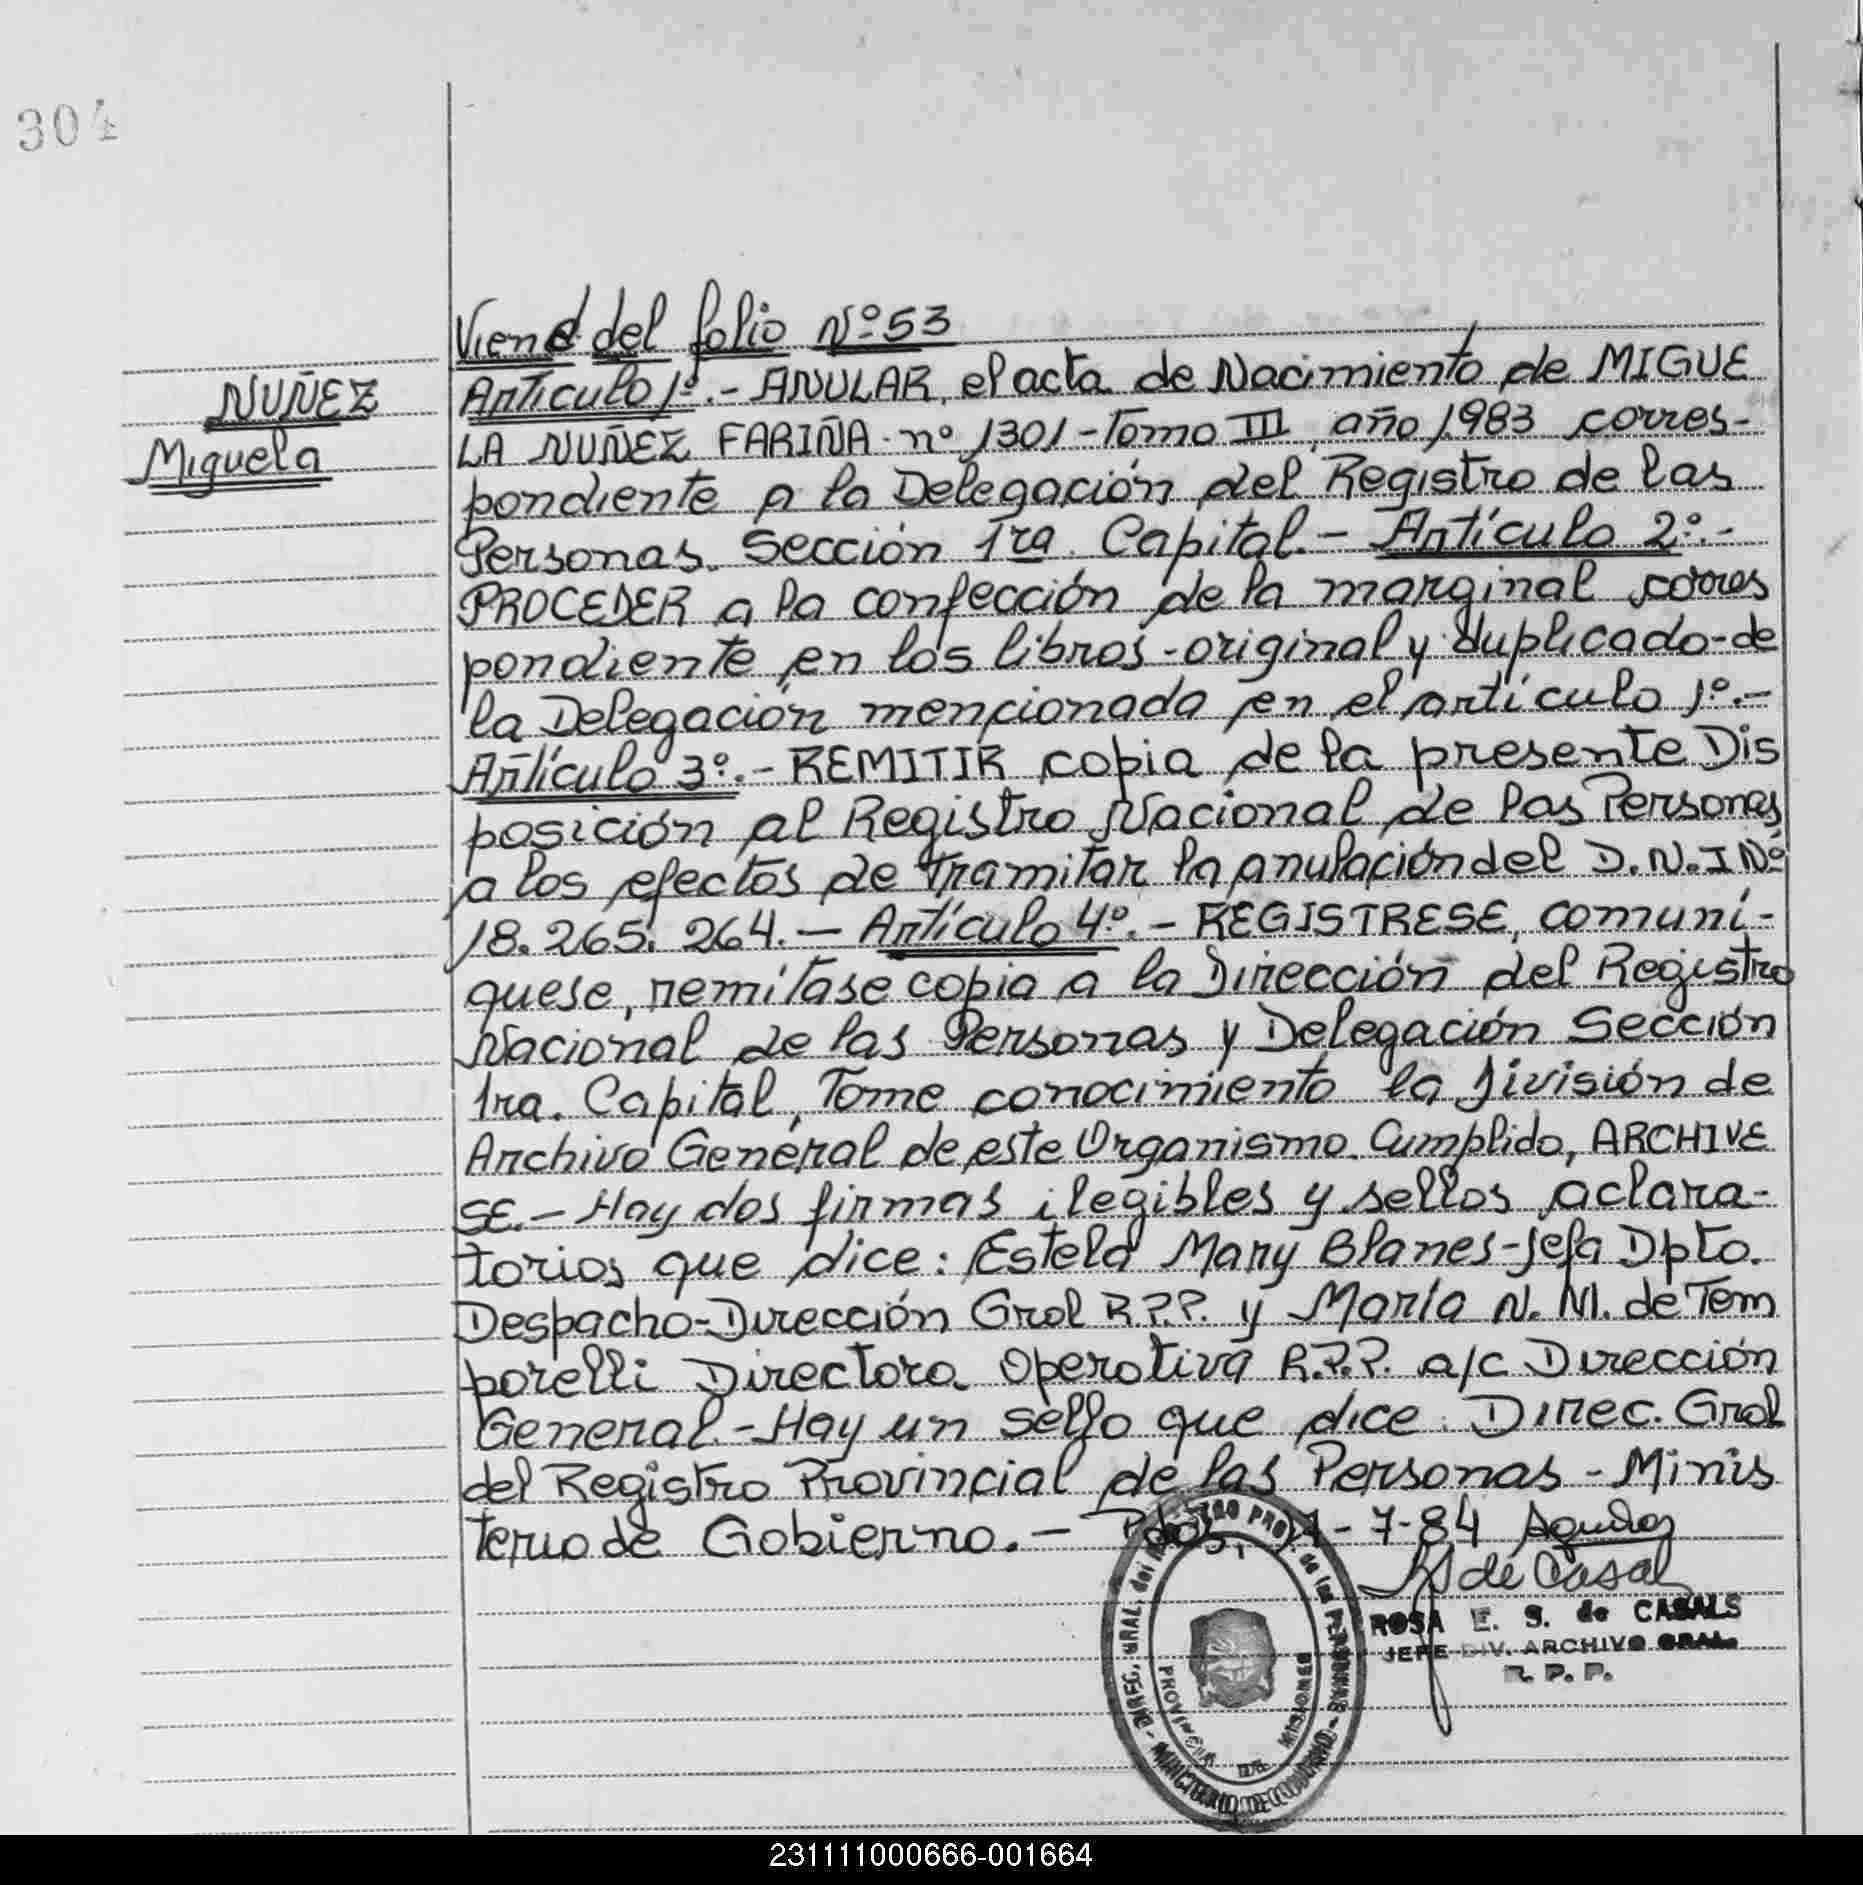 304
Viene del folio Nº 53
NUÑEZ
Miguela
Artículo 1º.- ANULAR, el acta de Nacimiento de MIGUE
LA NUÑEZ FARIÑA - nº 1301 - Tomo III, año 1983 corres-
pondiente a la Delegación del Registro de las
Personas. Sección 1ra. Capital.- Artículo 2º.-
PROCEDER a la confección de la marginal corres
pondiente en los libros - original y duplicado - de
la Delegación mencionada en el artículo 1º.-
Artículo 3º.- REMITIR copia de la presente Dis
posición al Registro Nacional de las Personas,
a los efectos de tramitar la anulación del D.N.I Nº
18.265.264.- Artículo 4º.- REGISTRESE, comuní-
quese, remítase copia a la Dirección del Registro
Nacional de las Personas y Delegación Sección
1ra. Capital, Tome conocimiento la División de
Archivo General de este Organismo. Cumplido, ARCHIVE
SE.- Hay dos firmas ilegibles y sellos aclara-
torios que dice: Estela Mary Blanes - Jefa Dpto.
Despacho - Dirección Gral R.P.P. y María N. M. de Tem
porelli Directora Operativa R.P.P. a/c Dirección
General.- Hay un sello que dice: Direc. Gral
del Registro Provincial de las Personas - Minis
terio de Gobierno.- Pdas, - 7-84
de Casal
ROSA E. S. de CASALS
JEFE DIV. ARCHIVO GRAL.
R. P. P.
DIREC. GRAL. del PROV. de las PERSONAS - MINISTERIO DE GOBIERNO -
PROVINCIA DE MISIONES
231111000666-001664